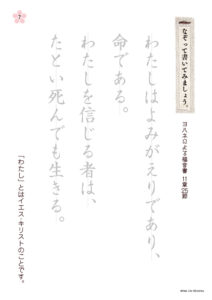 7
なぞって書いてみましょう。
ヨハネによる福音書 11章25節
わたしはよみがえりであり、
命である。
わたしを信じる者は、
たとい死んでも生きる。
「わたし」とはイエス・キリストのことです。